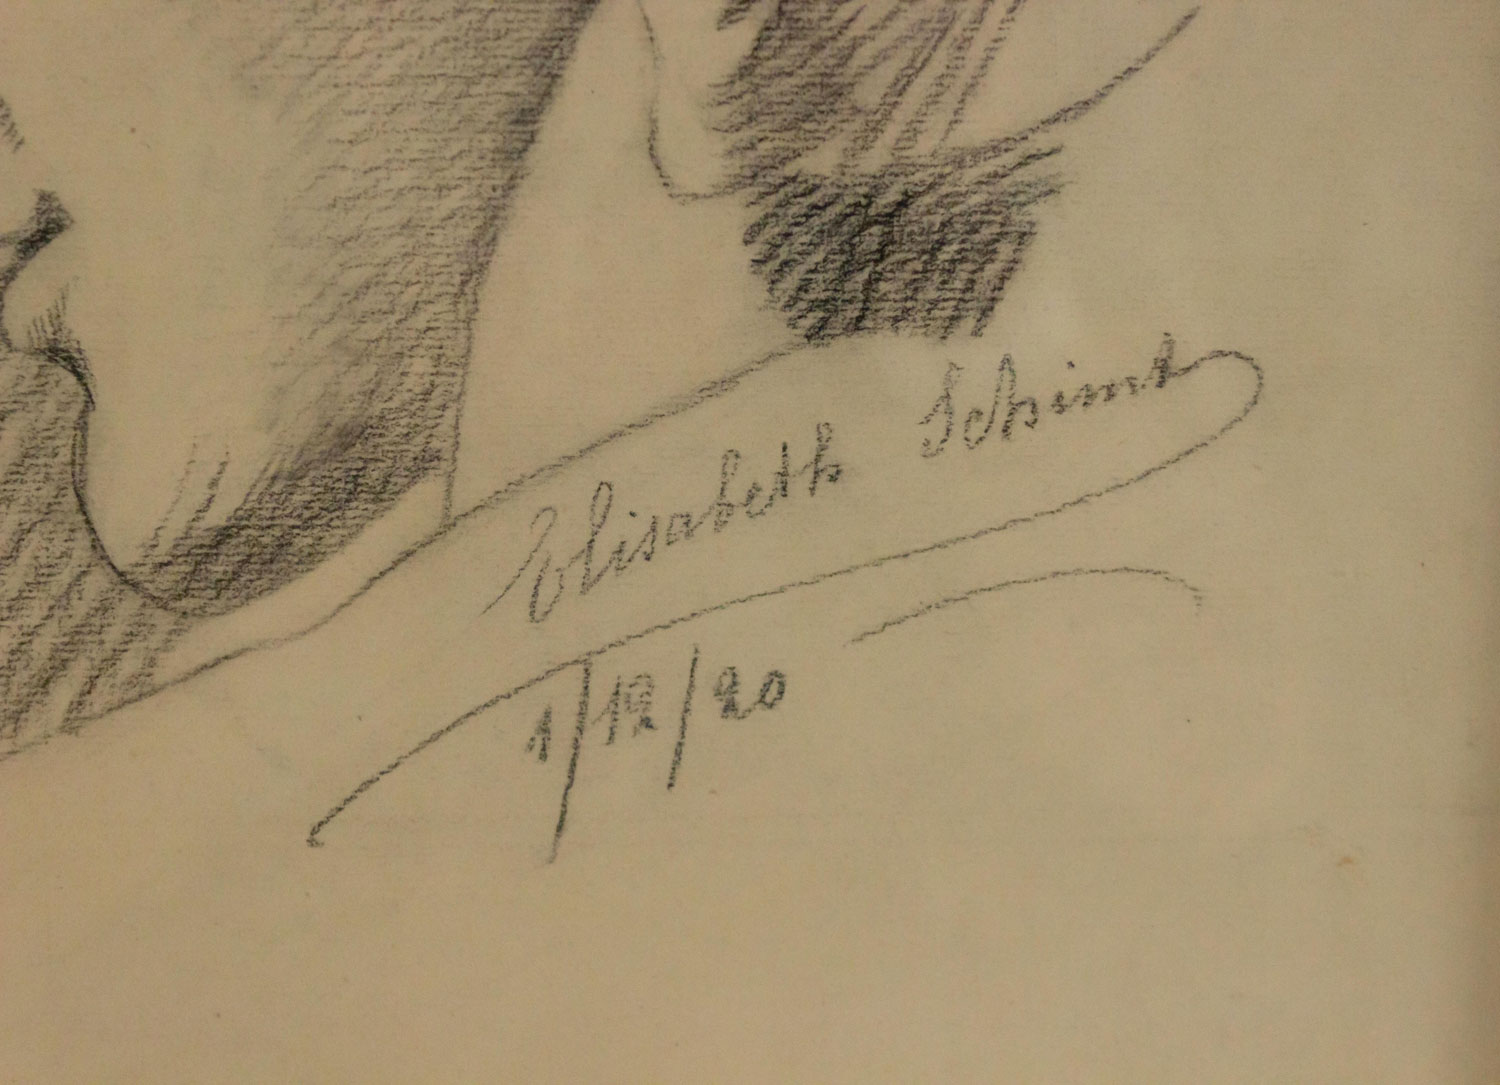 Elisabeth
1/12/20